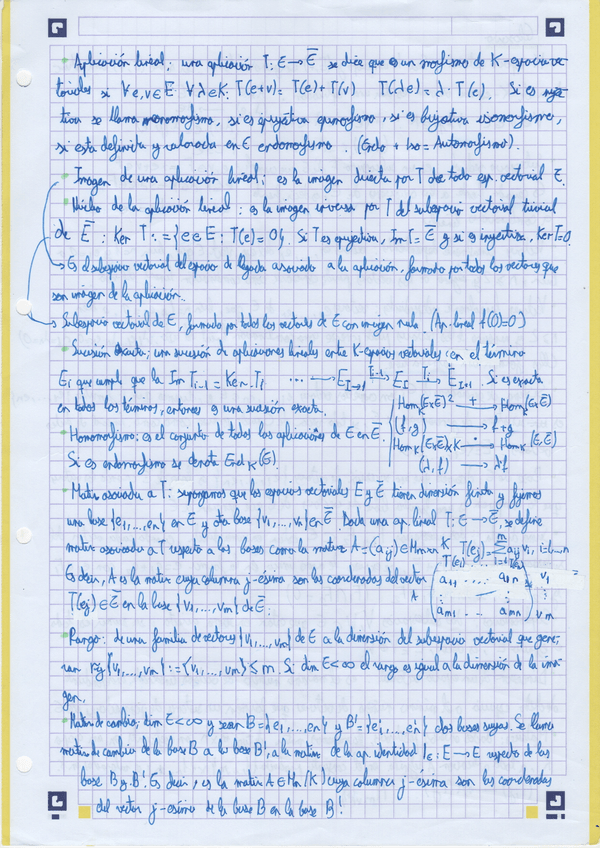 Aplicación lineal: una aplicación T: E → Ē se dice que es un morfismo de K-espacios ve-
toriales si ∀ e,v ∈ E ∀ λ ∈ K: T(e+v) = T(e) + T(v) T(λe) = λ · T(e). Si es inyec-
tiva se llama monomorfismo, si es epiyectiva epimorfismo, si es biyectiva isomorfismo,
si esta definida y valorada en E endomorfismo. (Endo + Iso = Automorfismo).
Imagen de una aplicación lineal: es la imagen directa por T de todo esp. vectorial E.
Núcleo de la aplicación lineal: es la imagen inversa por T del subespacio vectorial trivial
de Ē: Ker T := {e ∈ E : T(e) = 0}. Si T es epiyectiva, Im T = Ē y si es inyectiva, Ker T = 0
→ Es el subespacio vectorial del espacio de llegada asociado a la aplicación, formado por todos los vectores que
son imagen de la aplicación.
→ Subespacio vectorial de E, formado por todos los vectores de E con imagen nula. (Ap. lineal f(0)=0)
Sucesión exacta; una sucesión de aplicaciones lineales entre K-espacios vectoriales: en el término
Ei que cumpla que la Im Ti-1 = Ker Ti ... → Ei-1 → Ei → Ei+1. Si es exacta
en todos los términos, entonces es una sucesión exacta.
Homomorfismo: es el conjunto de todas las aplicaciones de E en Ē.
Si es endomorfismo se denota EndK(E).
HomK(E,Ē)² + → HomK(E,Ē)
(f,g) → f+g
HomK(E,Ē)xK · → HomK(E,Ē)
(λ,f) → λf
Matriz asociada a T: supongamos que los espacios vectoriales E y Ē tienen dimensión finita y fijemos
una base {e1,...,en} en E y otra base {v1,...,vm} en Ē. Dada una ap. lineal T: E → Ē, se define
matriz asociada a T respecto a las bases como la matriz A = (aij) ∈ Mm×n K T(ej) = Σ aij vi, i=1...n
Es decir, A es la matriz cuya columna j-ésima son las coordenadas del vector
T(ej) ∈ Ē en la base {v1,...,vm} de Ē.
T(e1) ... T(en)
A ( a11 .... a1n ) v1
( am1 ... amn ) vm
Rango: de una familia de vectores {v1,...,vm} de E a la dimensión del subespacio vectorial que gene-
ran rg{v1,...,vm} := ⟨v1,...,vm⟩ ≤ m. Si dim E < ∞ el rango es igual a la dimensión de la ima-
gen.
Matriz de cambio; dim E < ∞ y sean B = {e1,...,en} y B' = {e'1,...,e'n} dos bases suyas. Se llama
matriz de cambio de la base B a la base B', a la matriz de la ap. identidad IE: E → E respecto de las
bases B y B'. Es decir, es la matriz A ∈ Mn(K) cuya columna j-ésima son las coordenadas
del vector j-ésimo de la base B en la base B'.